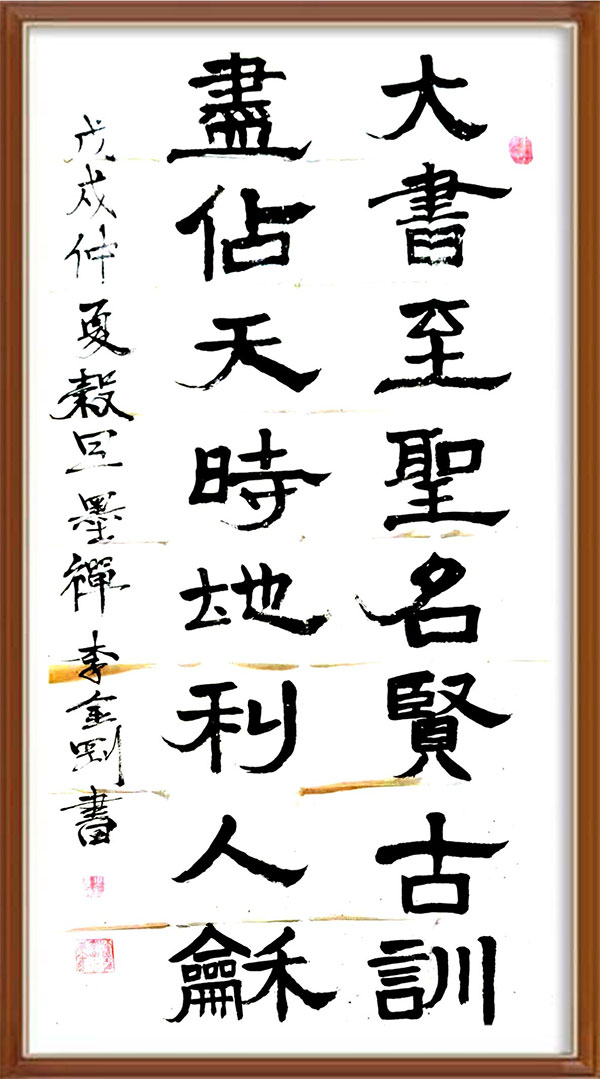 大書至聖名賢古訓
盡佔天時地利人龢
戊戌仲夏穀旦墨禪李金剛書